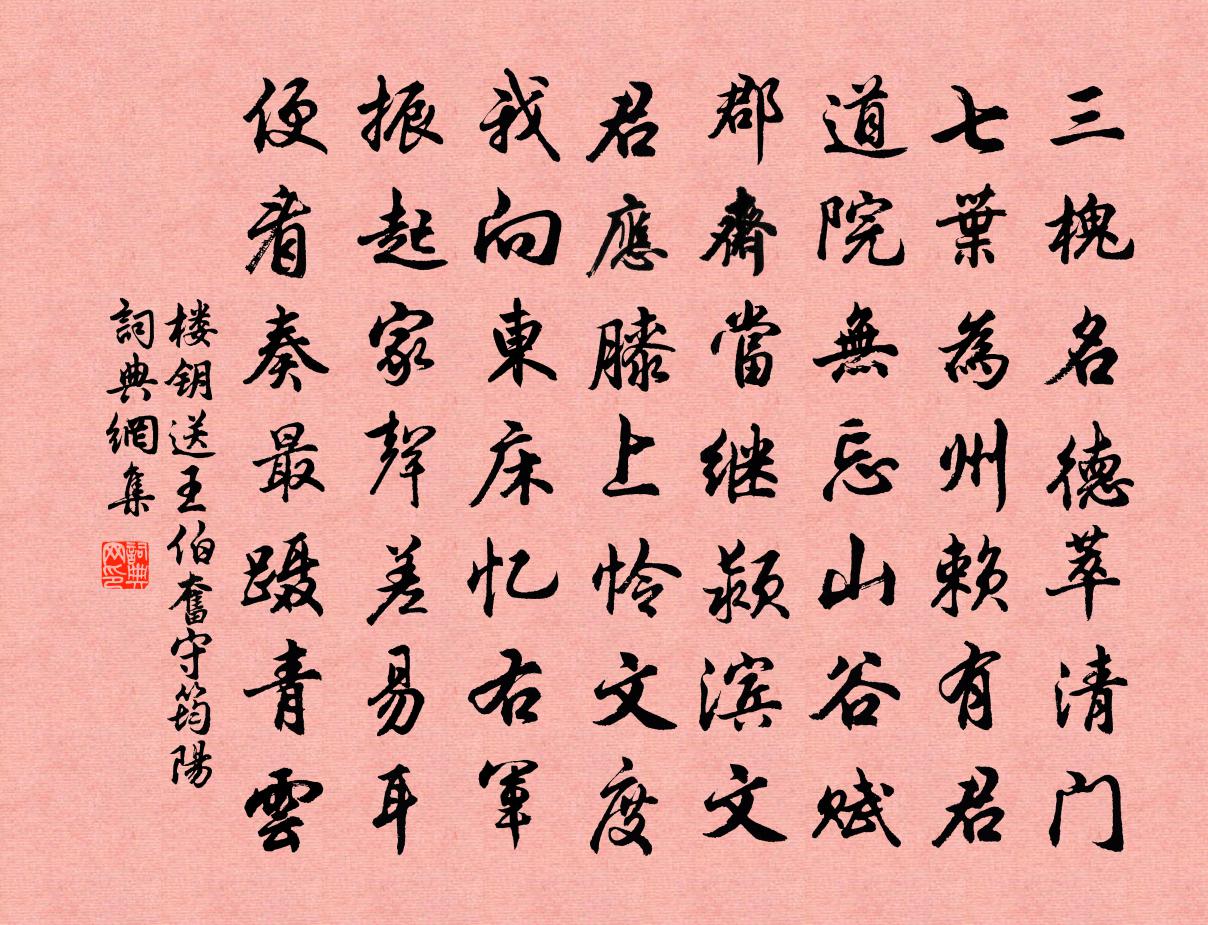 三槐名德萃清门
七葉為州赖有君
道院無忘山谷赋
郡齋當继颍滨文
君應膝上怜文度
我向東床忆右軍
振起家聲差易耳
便看奏最蹑青雲
楼钥送王伯奮守筠陽
詞典網集
詞典网印